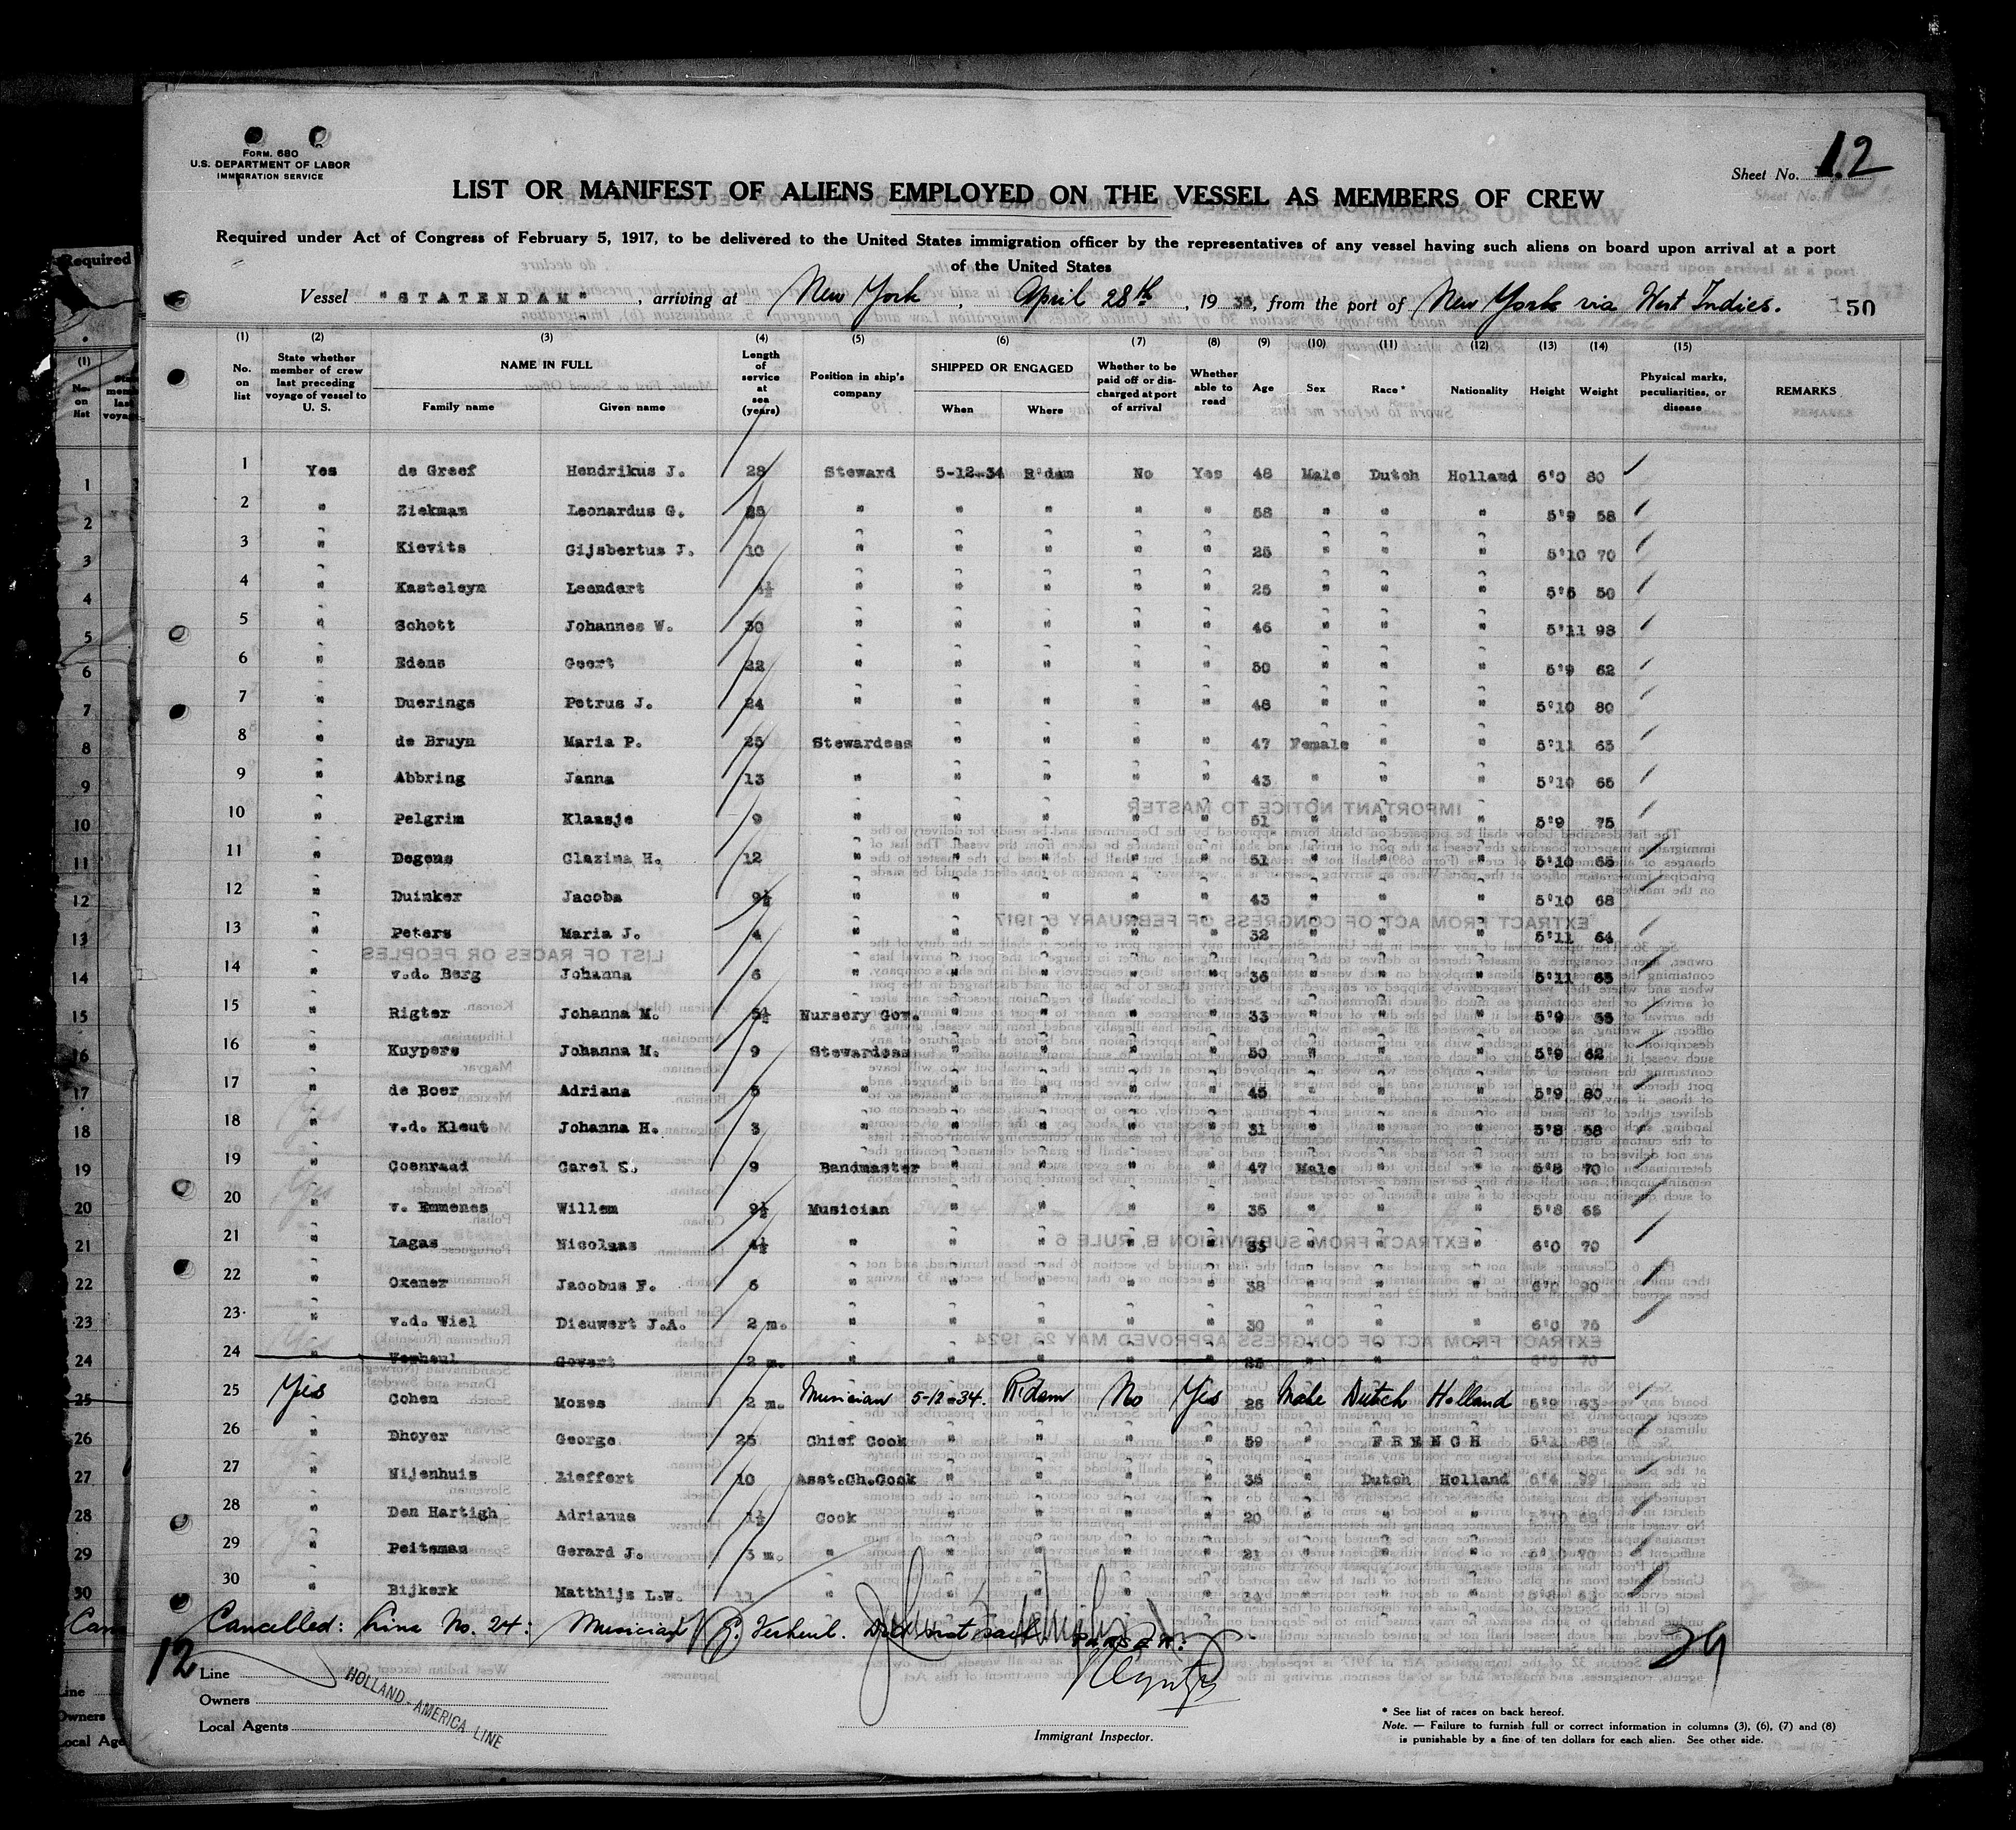 FORM. 680
U.S. DEPARTMENT OF LABOR
IMMIGRATION SERVICE
Sheet No. 12
LIST OR MANIFEST OF ALIENS EMPLOYED ON THE VESSEL AS MEMBERS OF CREW
Required under Act of Congress of February 5, 1917, to be delivered to the United States immigration officer by the representatives of any vessel having such aliens on board upon arrival at a port
of the United States
Vessel "STATENDAM", arriving at New York, April 28th, 1935, from the port of New York via West Indies. 150
(1) (2) (3) (4) (5) (6) (7) (8) (9) (10) (11) (12) (13) (14) (15)
No. on list State whether member of crew last preceding voyage of vessel to U. S. NAME IN FULL Family name Given name Length of service at sea (years) Position in ship's company SHIPPED OR ENGAGED When Where Whether to be paid off or discharged at port of arrival Whether able to read Age Sex Race* Nationality Height Weight Physical marks, peculiarities, or disease REMARKS
1 Yes de Greef Hendrikus J. 28 Steward 5-12-34 R'dam No Yes 48 Male Dutch Holland 6'0 80
2 " Ziekman Leonardus G. 25 " " " " " 58 " " " 5'9 58
3 " Kievits Gijsbertus J. 10 " " " " " 25 " " " 5'10 70
4 " Kasteleyn Leendert 4½ " " " " " 25 " " " 5'6 50
5 " Schott Johannes W. 30 " " " " " 46 " " " 5'11 98
6 " Edens Geert 22 " " " " " 50 " " " 5'9 62
7 " Duerings Petrus J. 24 " " " " " 48 " " " 5'10 80
8 " de Bruyn Maria P. 25 Stewardess " " " " 47 Female " " 5'11 65
9 " Abbring Janna 13 " " " " " 43 " " " 5'10 65
10 " Pelgrim Klaasje 9 " " " " " 51 " " " 5'9 75
11 " Degens Glazina H. 12 " " " " " 51 " " " 5'10 65
12 " Duinker Jacoba 9½ " " " " " 43 " " " 5'10 68
13 " Peters Maria J. 4 " " " " " 32 " " " 5'11 64
14 " v.d. Berg Johanna 6 " " " " " 36 " " " 5'11 65
15 " Rigter Johanna M. 5½ Nursery Gov. " " " " 33 " " " 5'9 55
16 " Kuypers Johanna M. 9 Stewardess " " " " 50 " " " 5'9 62
17 " de Boer Adriana 5 " " " " " 45 " " " 5'9 80
18 " v.d. Kleut Johanna H. 3 " " " " " 31 " " " 5'8 58
19 " Coenraad Carel S. 9 Bandmaster " " " " 47 Male " " 5'8 70
20 " v. Emmenes Willem 9½ Musician " " " " 35 " " " 5'8 65
21 " Lagas Nicolaas 4½ " " " " " 35 " " " 6'0 70
22 " Oxener Jacobus F. 6 " " " " " 38 " " " 6'0 90
23 " v.d. Wiel Dieuwert J.A. 2 m. " " " " " 30 " " " 6'0 75
24 " Verheul Govert 2 m. " " " " " 25 " " " 6'0 70
25 Yes Cohen Mozes 2 m. Musician 5-12-34. R'dam No Yes 25 Male Dutch Holland 5'9 63
26 " Dhoyer George 25 Chief Cook " " " " 59 " FRENCH 5'1 68
27 " Nijenhuis Lieffert 10 Asst.Ch.Cook " " " " 35 " Dutch Holland 6'4 99
28 " Den Hartigh Adrianus 1½ Cook " " " " 20 " " "
29 " Peitsman Gerard J. 3 m. " " " " " 21 " " " 5'10 70
30 " Bijkerk Matthijs L.W. 11 " " " " " " " "
Cancelled: Line No. 24: Musician G. Verheul. Did not sail
PURSER.
29
12
Line HOLLAND-AMERICA LINE
Owners
Local Agents
Immigrant Inspector.
* See list of races on back hereof.
Note. — Failure to furnish full or correct information in columns (3), (6), (7) and (8)
is punishable by a fine of ten dollars for each alien. See other side.